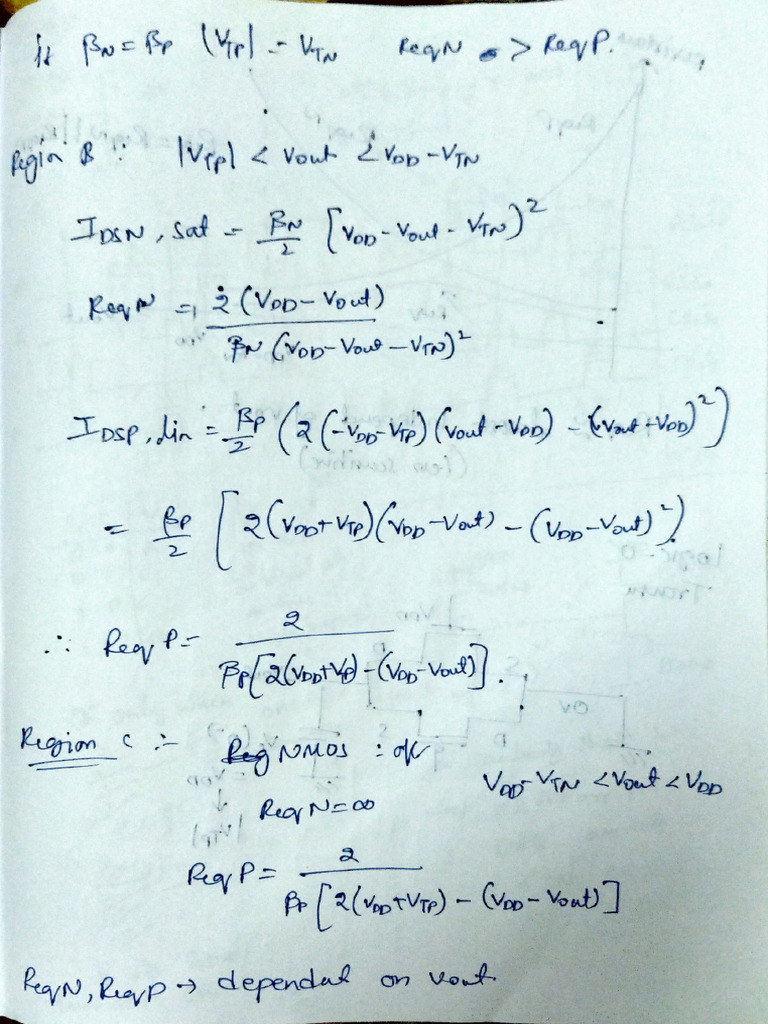 If βN = βP |VTP| = VTN ReqN > ReqP.
Region B :- |VTP| < Vout < VDD-VTN
IDSN, sat = βN/2 [VDD - Vout - VTN)²
ReqN = 2(VDD - Vout) / βN (VDD - Vout - VTN)²
IDSP, lin = βP/2 (2(-VDD-VTP)(Vout-VDD) - (Vout+VDD)²)
= βP/2 [2(VDD+VTP)(VDD-Vout) - (VDD-Vout)²)
∴ ReqP = 2 / βP[2(VDD+VP)-(VDD-Vout)].
Region C :- NMOS : off
VDD-VTN < Vout < VDD
ReqN = ∞
ReqP = 2 / βP [2(VDD+VTP) - (VDD-Vout)]
ReqN, ReqP → dependat on Vout